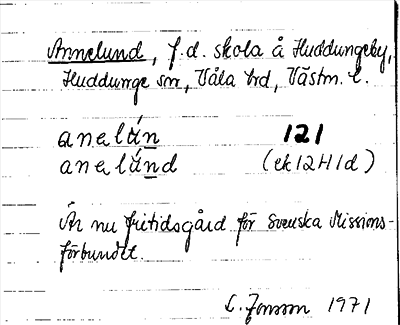 Annelund, f.d. skola å Huddungeby,
Huddunge sn, Våla hd, Västm. l.
anelún 121
anelúnd (ek 12H1d)
Är nu fritidsgård för Svenska Missions-
förbundet.
L. Jonsson 1971